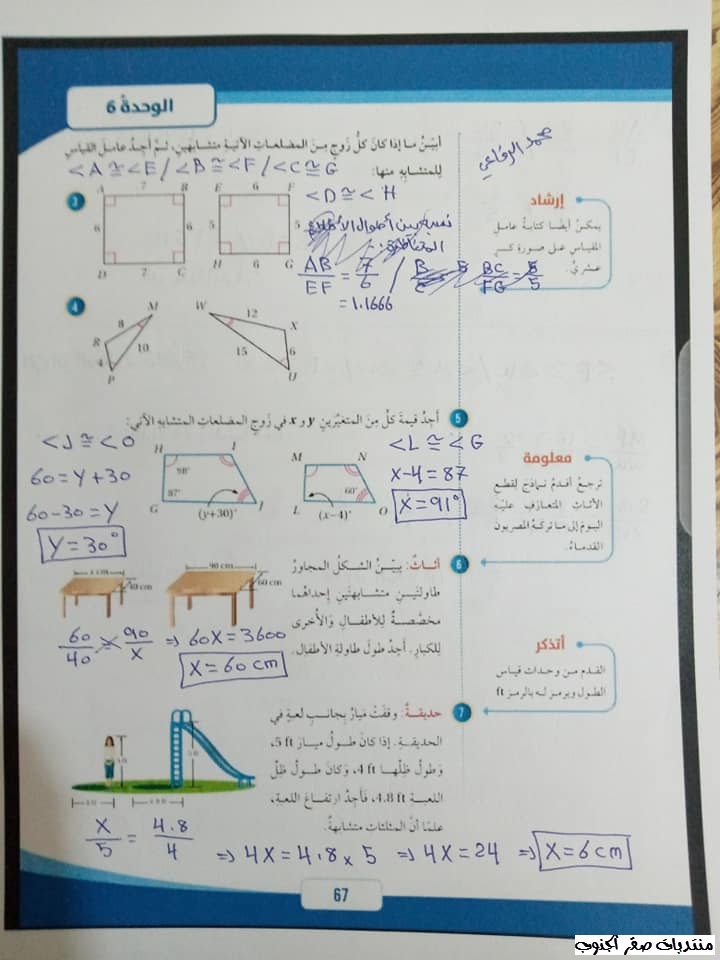 الوحدةُ 6
أبيّنُ ما إذا كانَ كلُّ زوجٍ مِنَ المضلعاتِ الآتيةِ متشابهَينِ، ثمَّ أجِدُ عاملَ القياسِ
لِلمتشابهِ منها:
<A ≅ <E / <B ≅ <F / <C ≅ <G
<D ≅ < H
محمد الرفاعي
إرشاد
يمكنُ أيضًا كتابةُ عاملِ
المقياسِ على صورةِ كسرٍ
عشريٍّ.
3
A 7 B
6 6
D 7 C
E 6 F
5 5
H 6 G
AB/EF = 7/6 / BC/FG = 6/5
= 1.1666
4
M
8
R 10
4
P
W 12
X
15 6
U
5 أجِدُ قيمةَ كلٍّ مِنَ المتغيّرَينِ x و y في زوجِ المضلعاتِ المتشابهِ الآتي:
<J ≅ <O
60 = y + 30
60-30 = y
y = 30°
H I
98°
87°
G (y+30)° J
M N
60°
L (x−4)° O
<L ≅ <G
x-4 = 87
x = 91°
معلومة
ترجعُ أقدمُ نماذجَ لِقطعِ
الأثاثِ المتعارَفِ عليهِ
اليومَ إلى ما تركهُ المصريون
القدماءُ.
6 أثاثٌ: يبيّنُ الشكلُ المجاورُ
طاولتَينِ متشابهتَينِ إحداهُما
مخصّصةٌ لِلأطفالِ وَالأُخرى
لِلكبارِ. أجِدُ طولَ طاولةِ الأطفالِ.
x cm
40 cm
90 cm
60 cm
60/40 = 90/x ⇒ 60x = 3600
x = 60 cm
أتذكر
القدم من وحدات قياس
الطول ويرمز له بالرمز ft
7 حديقةٌ: وقفَتْ مَيارُ بجانبِ لعبةٍ في
الحديقةِ. إذا كانَ طولُ ميارَ 5 ft،
وَطولُ ظلِّها 4 ft، وَكانَ طولُ ظلِّ
اللعبةِ 4.8 ft، فَأجِدُ ارتفاعَ اللعبةِ،
علمًا أنَّ المثلثاتِ متشابهةٌ.
x/5 = 4.8/4 ⇒ 4x = 4.8 × 5 ⇒ 4x = 24 ⇒ x = 6 cm
67
منتديات صقر الجنوب